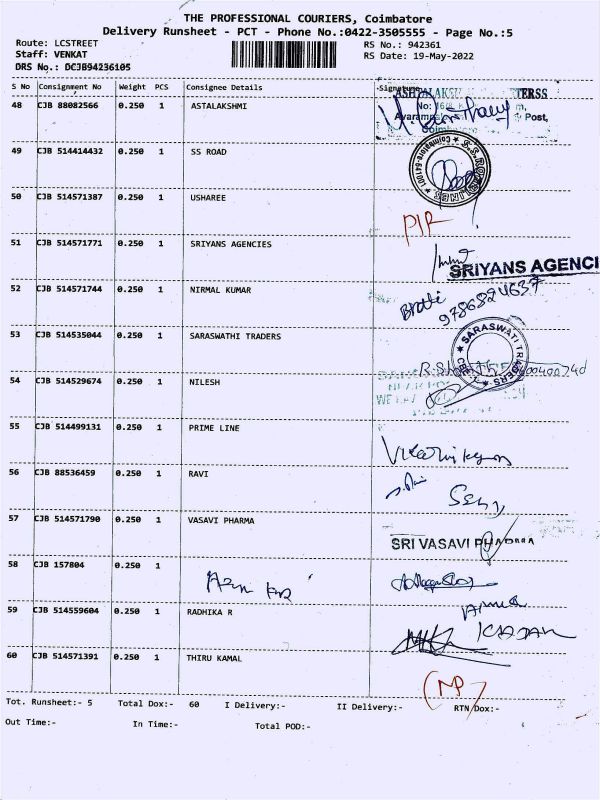 THE PROFESSIONAL COURIERS, Coimbatore
Delivery Runsheet - PCT - Phone No.:0422-3505555 - Page No.:5
Route: LCSTREET
RS No.: 942361
Staff: VENKAT
RS Date: 19-May-2022
DRS No.: DCJB94236105
S No Consignment No Weight PCS Consignee Details Signature
48 CJB 88082566 0.250 1 ASTALAKSHMI
49 CJB 514414432 0.250 1 SS ROAD
50 CJB 514571387 0.250 1 USHAREE
51 CJB 514571771 0.250 1 SRIYANS AGENCIES
SRIYANS AGENCI
52 CJB 514571744 0.250 1 NIRMAL KUMAR
9786824637
53 CJB 514535044 0.250 1 SARASWATHI TRADERS
SARASWATI TRADERS
54 CJB 514529674 0.250 1 NILESH
55 CJB 514499131 0.250 1 PRIME LINE
56 CJB 88536459 0.250 1 RAVI
57 CJB 514571790 0.250 1 VASAVI PHARMA
SRI VASAVI PHARMA
58 CJB 157804 0.250 1
59 CJB 514559604 0.250 1 RADHIKA R
60 CJB 514571391 0.250 1 THIRU KAMAL
(NP)
Tot. Runsheet:- 5 Total Dox:- 60 I Delivery:- II Delivery:- RTN Dox:-
Out Time:- In Time:- Total POD:-